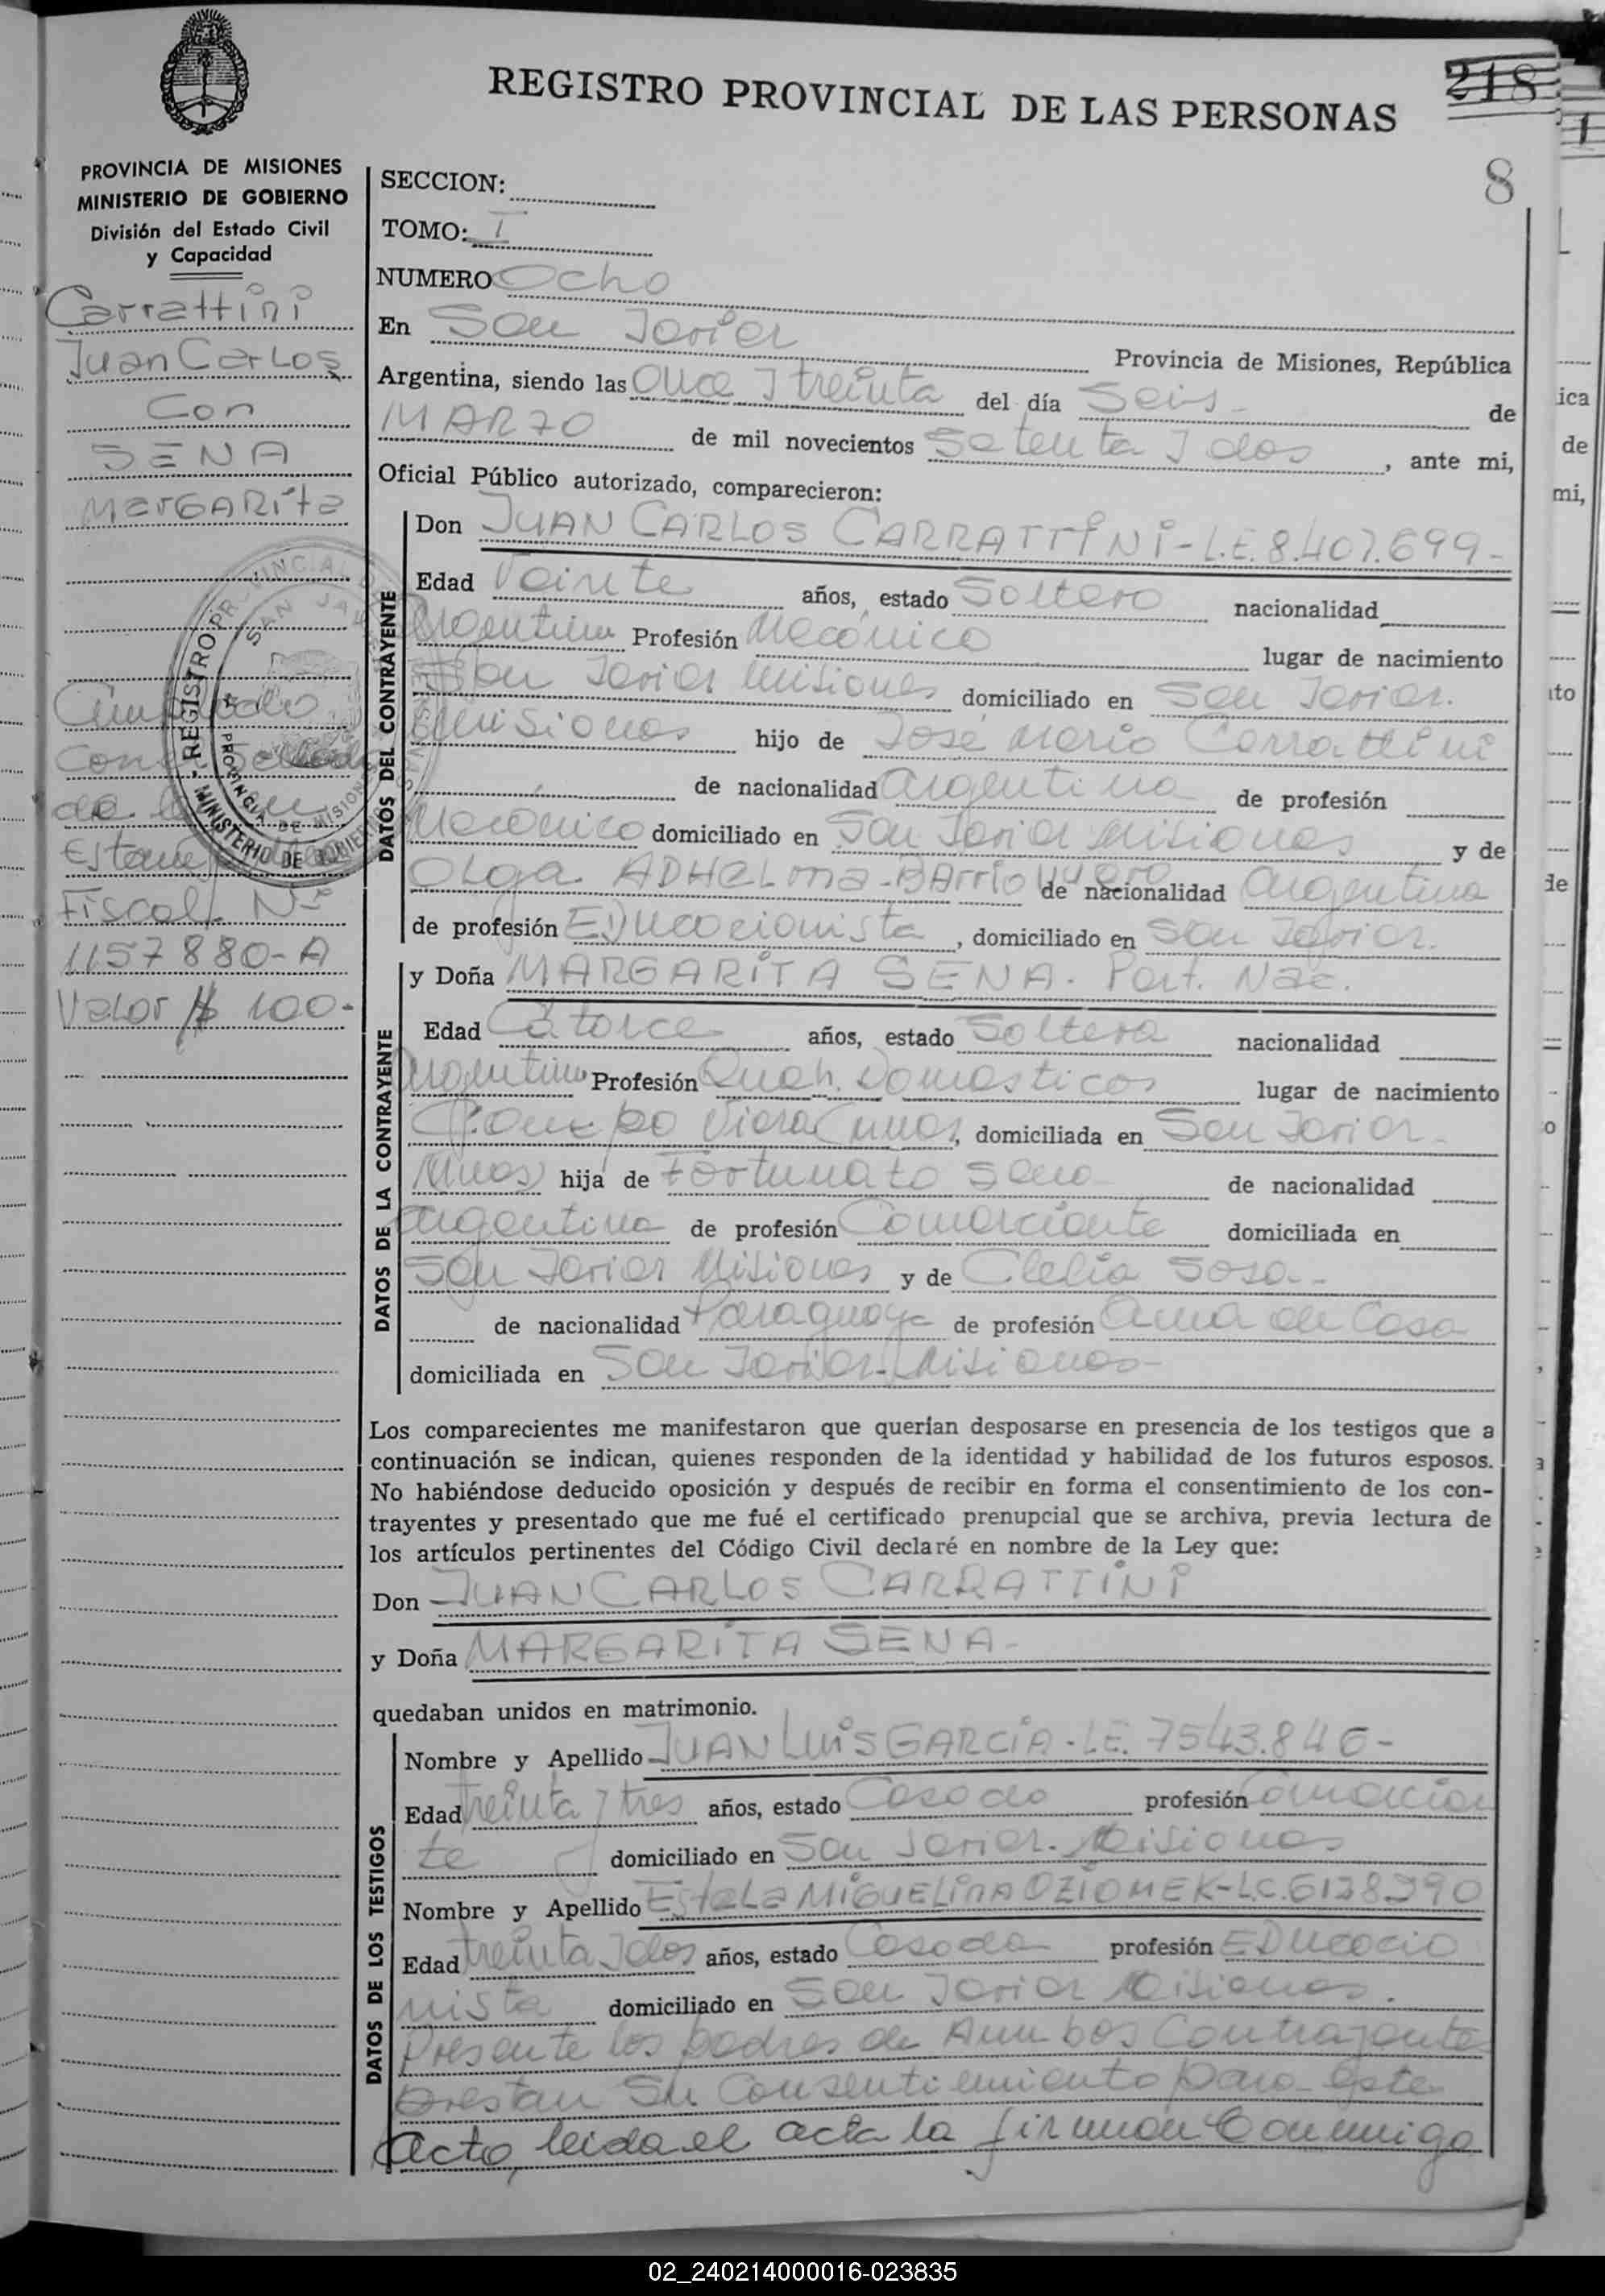 REGISTRO PROVINCIAL DE LAS PERSONAS
218
8
PROVINCIA DE MISIONES
MINISTERIO DE GOBIERNO
División del Estado Civil
y Capacidad
Carrattini
Juan Carlos
Con
SENA
MARGARITA
Fiscal Nº
1157880-A
Valor $ 100-
SECCION:
TOMO: I
NUMERO Ocho
En San Javier
Provincia de Misiones, República
Argentina, siendo las Once y treinta del día Seis de
MARZO de mil novecientos Setenta y dos, ante mi,
Oficial Público autorizado, comparecieron:
DATOS DEL CONTRAYENTE
Don JUAN CARLOS CARRATTINI - L.E. 8.407.699-
Edad Veinte años, estado Soltero nacionalidad
Argentina Profesión Mecánico lugar de nacimiento
San Javier Misiones domiciliado en San Javier.
Misiones hijo de José Mario Carrattini
de nacionalidad argentina de profesión
Mecánico domiciliado en San Javier Misiones y de
Olga ADHELma - BArrioNUEvo de nacionalidad argentina
de profesión EDUcacionista, domiciliado en San Javier.
DATOS DE LA CONTRAYENTE
y Doña MARGARITA SENA. Part. Nac.
Edad Catorce años, estado Soltera nacionalidad
argentina Profesión Queh. Domesticos lugar de nacimiento
Campo Viera (Mnes), domiciliada en San Javier.
Mnes) hija de Fortunato Sena de nacionalidad
argentina de profesión Comerciante domiciliada en
San Javier Misiones y de Clelia Sosa.-
de nacionalidad Paraguaya de profesión ama de Casa
domiciliada en San Javier-Misiones-
Los comparecientes me manifestaron que querían desposarse en presencia de los testigos que a
continuación se indican, quienes responden de la identidad y habilidad de los futuros esposos.
No habiéndose deducido oposición y después de recibir en forma el consentimiento de los con-
trayentes y presentado que me fué el certificado prenupcial que se archiva, previa lectura de
los artículos pertinentes del Código Civil declaré en nombre de la Ley que:
Don JUAN CARLOS CARRATTINI
y Doña MARGARITA SENA-
quedaban unidos en matrimonio.
DATOS DE LOS TESTIGOS
Nombre y Apellido JUAN LUIS GARCIA - LE. 7543.846-
Edad treinta y tres años, estado Casado profesión Comercian
te domiciliado en San Javier. Misiones
Nombre y Apellido Estela MIGUELINA DZIOMEK - L.C. 6128990
Edad treinta y dos años, estado Casada profesión EDUcacio
nista domiciliado en San Javier Misiones.
Presente los padres de Ambos Contrayente
prestan Su Consentimiento para este
acto, leida el acta la firman Conmigo
02_240214000016-023835